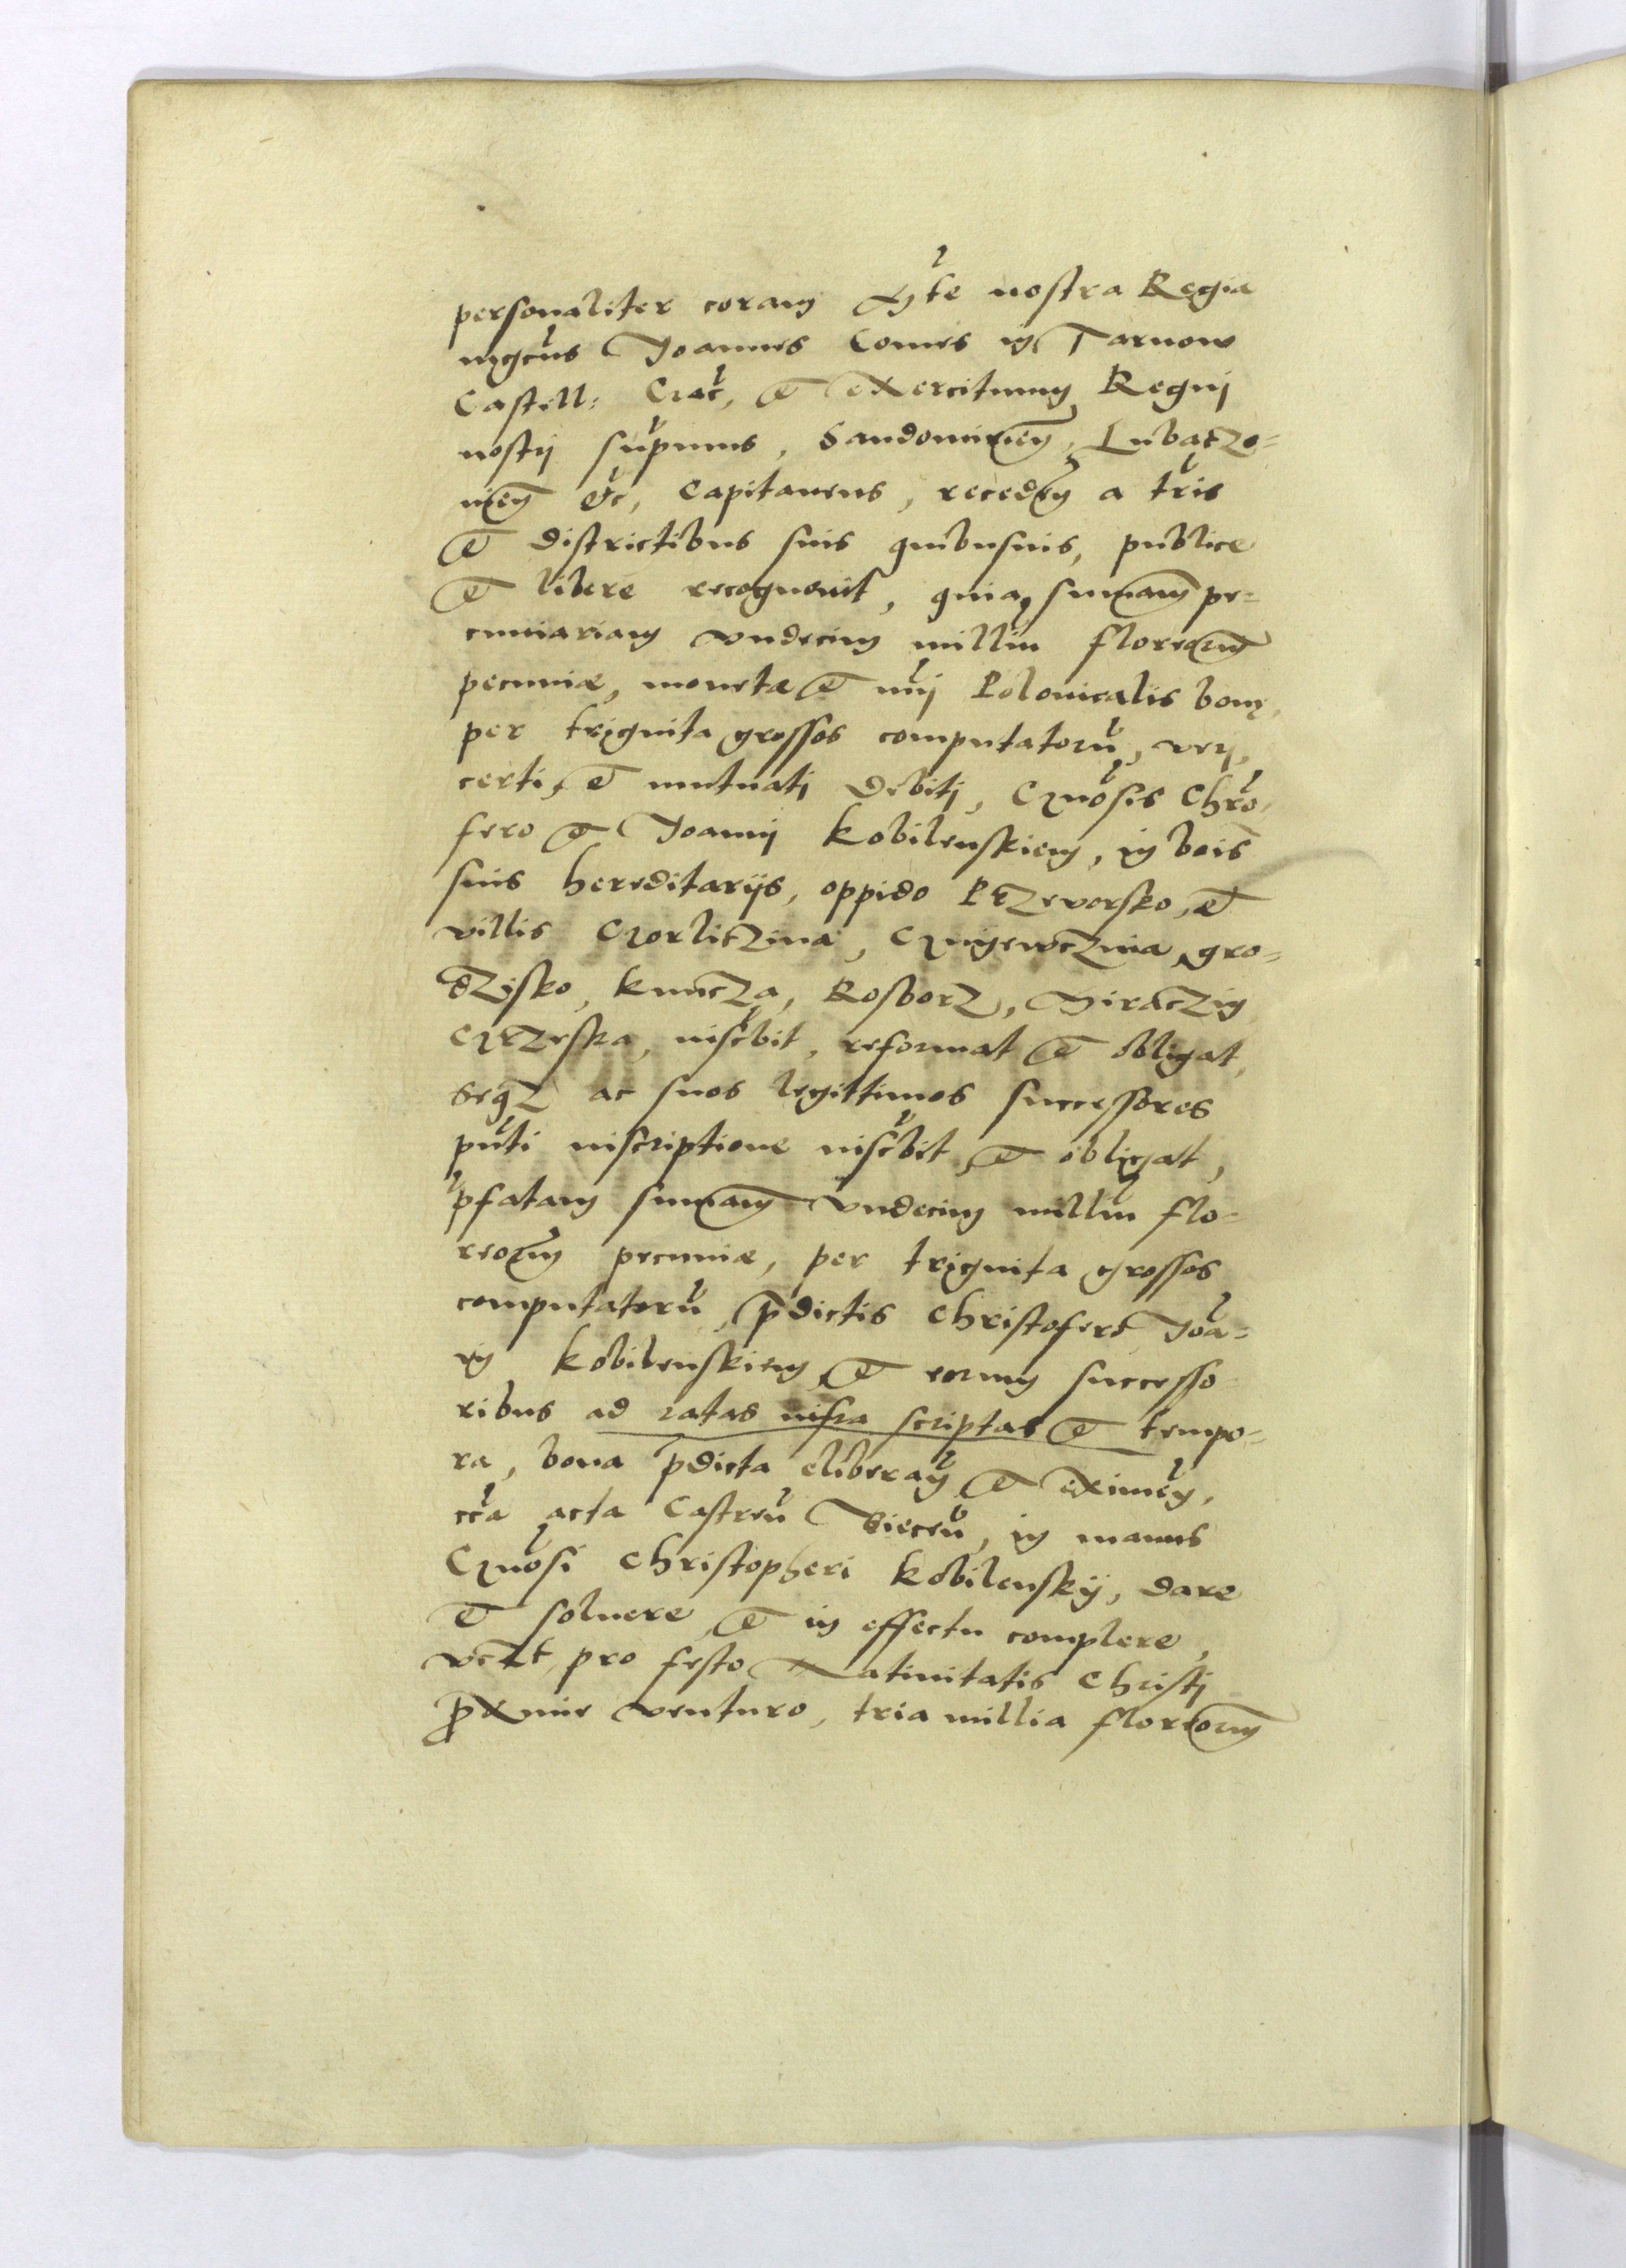 personaliter coram Mte nostra Regia
mgcus Joannes Comes in Tarnow
Castell: Crac, et exercituum Regni
nostri supmus, Sandomirien, Lubaczo-
nien etc, Capitaneus, receden a tris
et districtibus suis quibusuis, publice
et libere recognouit, quia summam pe-
cuniariam vndecim milliu florenorum
pecuniæ, monetæ et nui Polonicalis bone,
per triginta grossos computatoru, veri,
certi, et mutuati debiti, Gnosis Chro-
fero et Joanni Kobilenskiem, in bois
suis hereditariis, oppido Przeworsko, et
villis Gorliczina, Gnijewczina, gro-
dzisko, kuncza, Rosborz, Siraczin
Grzeska, inscbit, reformat et obligat,
seqz ac suos legittimos successores
punti inscriptione inscbit, et obligat,
pfatam summam vndecim milliu flo-
renorum pecuniæ, per triginta grossos
computatoru, pdictis Christofero Joa-
ni Kobilenskiem, et eorum successo-
ribus ad ratas infra scriptas et tempo-
ra, bona pdicta eliberan et eximen,
cora acta Castren Biecen, in manus
Gnosi Christopheri Kobilenskij, dare
et soluere, et in effectu complere,
vczt, pro festo Natiuitatis Christi
proxime venturo, tria millia florenorum